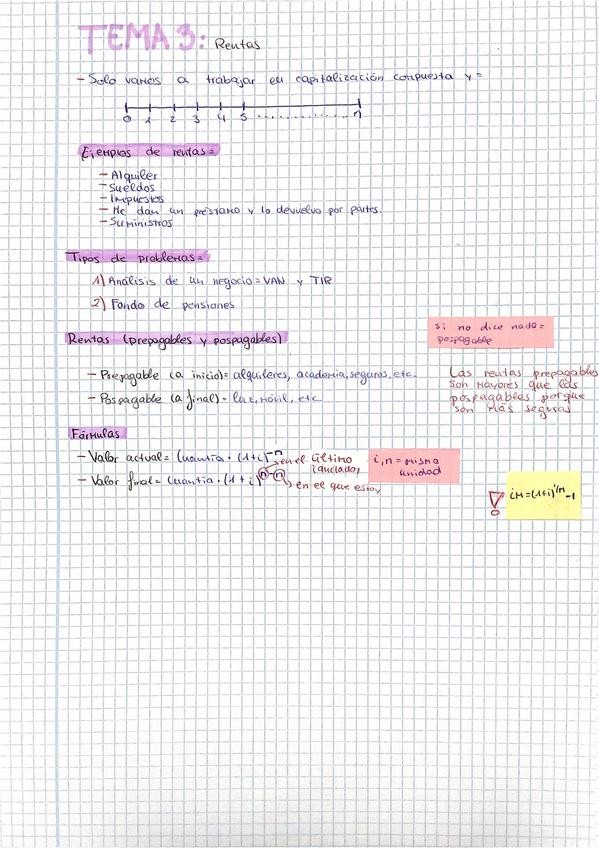 TEMA 3: Rentas
- Solo vamos a trabajar en capitalización compuesta y =
0 1 2 3 4 5 .............. n
Ejemplos de rentas =
- Alquiler
- Sueldos
- Impuestos
- Me dan un préstamo y lo devuelvo por partes.
- Suministros
Tipos de problemas =
1) Análisis de un negocio = VAN y TIR
2) Fondo de pensiones
si no dice nada =
pospagable
Rentas (prepagables y pospagables)
- Prepagable (a inicio) = alquileres, academia, seguros, etc.
- Pospagable (a final) = luz, móvil, etc
Las rentas prepagables
son mayores que las
pospagables porque
son más seguras
Fórmulas
- Valor actual = Cuantía · (1+i)^-n
- Valor final = Cuantía · (1+i)^n-n
en el último
en el que estoy
i, n = misma
unidad
! iM = (1+i)^1/M - 1